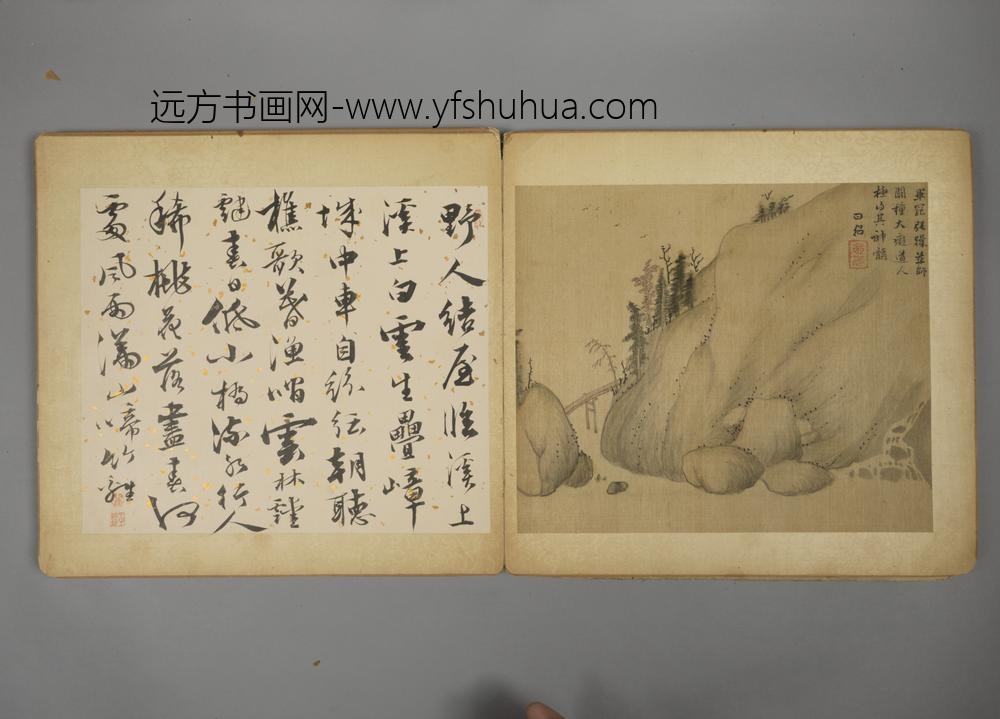 远方书画网-www.yfshuhua.com
畢宏張璪並師
關種大癡道人
極得其神髓
野人結屋臨溪上
溪上白雲生疊嶂
城中車自紛紜朝聽
樵歌暮漁唱雲林靉
靆春日低小橋流水行人
稀桃花落盡春何
處風雨滿山啼竹雞